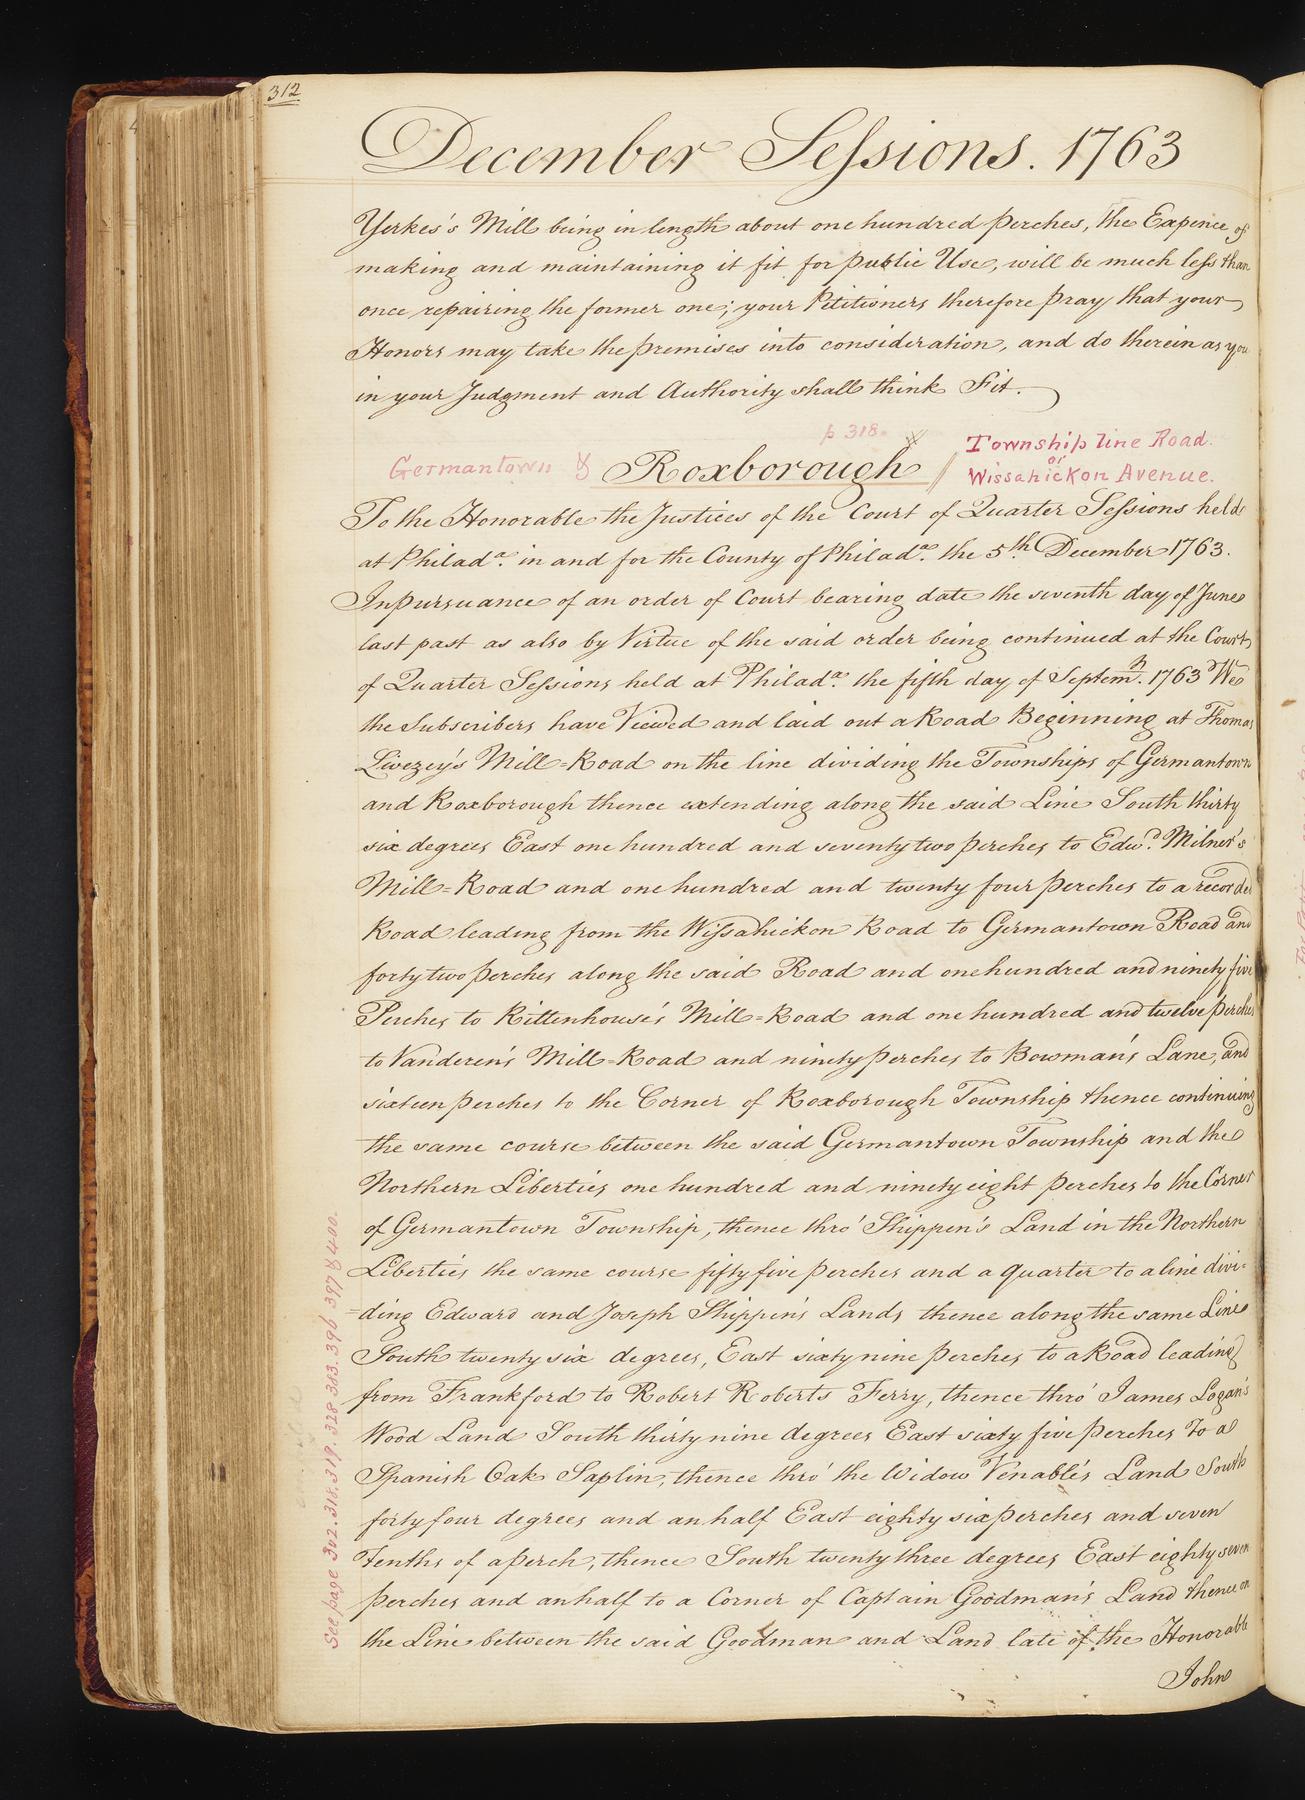 312
December Sessions. 1763
Yerkes's Mill being in length about one hundred perches, the Expence of
making and maintaining it fit for public Use, will be much less than
once repairing the former one; your Petitioners therefore pray that your
Honors may take the premises into consideration, and do therein as you
in your Judgment and Authority shall think Fit.
p 318.
Germantown & Roxborough // Township line Road.
or
Wissahickon Avenue.
To the Honorable the Justices of the Court of Quarter Sessions held
at Philada. in and for the County of Philada. the 5th. December 1763.
In pursuance of an order of Court bearing date the seventh day of June
last past as also by Virtue of the said order being continued at the Court
of Quarter Sessions held at Philada. the fifth day of Septemr. 1763 We
the Subscribers have Viewed and laid out a Road Beginning at Thomas
Livezey's Mill=Road on the line dividing the Townships of Germantown
and Roxborough thence extending along the said Line South thirty
six degrees East one hundred and seventy two perches to Edwd. Milner's
Mill=Road and one hundred and twenty four perches to a recorded
Road leading from the Wissahickon Road to Germantown Road and
forty two perches along the said Road and one hundred and ninety five
Perches to Rittenhouse's Mill=Road and one hundred and twelve perches
to Vanderen's Mill=Road and ninety perches to Bowman's Lane, and
sixteen perches to the Corner of Roxborough Township thence continuing
the same course between the said Germantown Township and the
Northern Liberties one hundred and ninety eight perches to the Corner
of Germantown Township, thence thro' Shippen's Land in the Northern
Liberties the same course fifty five perches and a quarter to a line divi=
=ding Edward and Joseph Shippen's Lands thence along the same Line
South twenty six degrees, East sixty nine perches to a Road leading
from Frankford to Robert Roberts Ferry, thence thro' James Logan's
Wood Land South thirty nine degrees East sixty five perches To a
Spanish Oak Saplin, thence thro' the Widow Venable's Land South
forty four degrees and an half East eighty six perches and seven
Tenths of a perch, thence South twenty three degrees East eighty seven
perches and an half to a Corner of Captain Goodman's Land thence on
the Line between the said Goodman and Land late of the Honorable
John
See page 302. 318. 319. 328 383. 396 397 & 400.